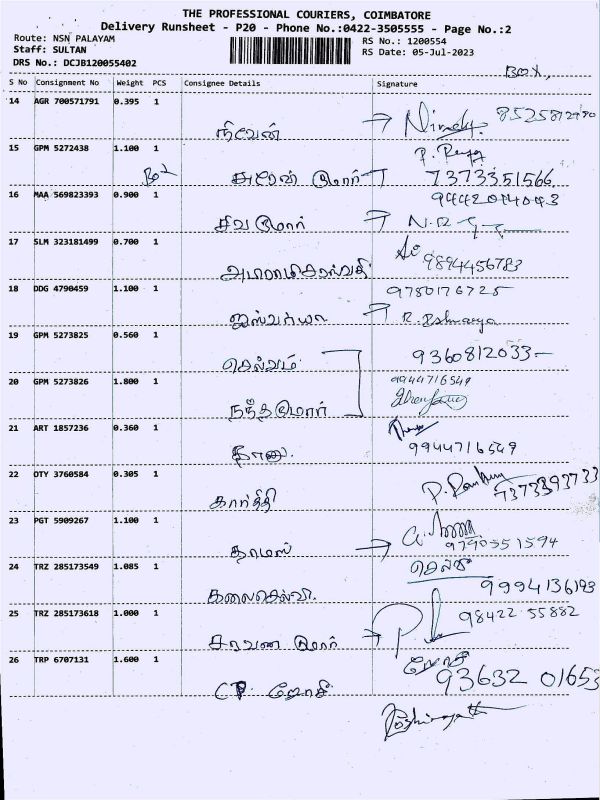 THE PROFESSIONAL COURIERS, COIMBATORE
Delivery Runsheet - P20 - Phone No.:0422-3505555 - Page No.:2
Route: NSN PALAYAM
RS No.: 1200554
Staff: SULTAN
RS Date: 05-Jul-2023
DRS No.: DCJB120055402
Box,
S No Consignment No Weight PCS Consignee Details Signature
14 AGR 700571791 0.395 1
நிவேன்
15 GPM 5272438 1.100 1
7373351566
16 MAA 569823393 0.900 1
சிவ குமார்
17 SLM 323181499 0.700 1
9894456783
18 DDG 4790459 1.100 1
9750176725
ஐஸ்வர்யா R. Eshwarya
19 GPM 5273825 0.560 1
செல்வம் 9360812033
20 GPM 5273826 1.800 1
9944716549
நந்தகுமார்
21 ART 1857236 0.360 1
9944716549
22 OTY 3760584 0.305 1
கார்த்தி 7373393733
23 PGT 5909267 1.100 1
தாமஸ் 9790351594
24 TRZ 285173549 1.085 1
கலைசெல்வி 9994136193
25 TRZ 285173618 1.000 1
98422 55882
சரவண குமார்
26 TRP 6707131 1.600 1
ஜோதி
93632 01653